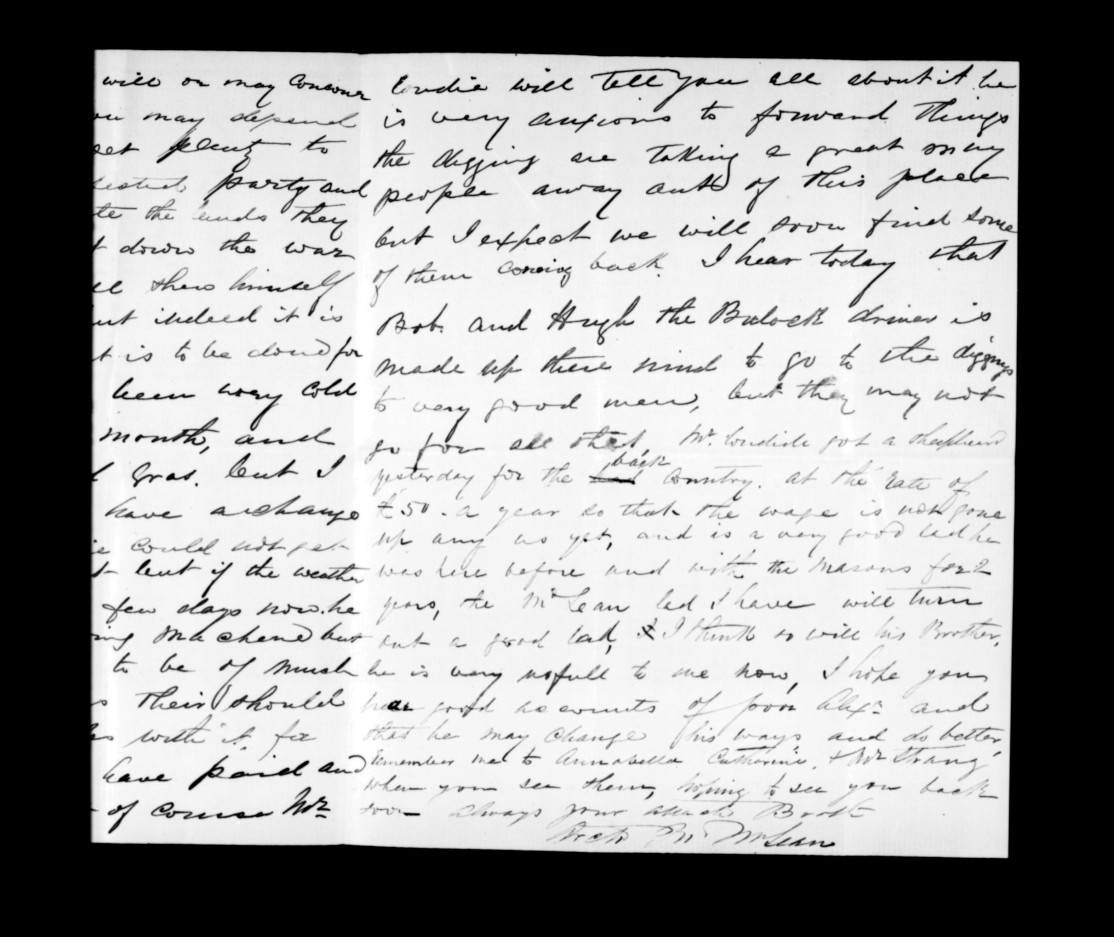 will or may concern
ou may depend
plenty to
party and
te the lands they
t down the war
himself
ut indeed it is
t is to be done for
been very cold
month, and
Gras. but I
have a change
could not get
t but if the weather
few days now. he
ing Machene but
to be of much
their should
with it, for
have paid and
of course Mr
will tell you all about it he
is very anxious to forward things
the digging are taking a great many
people away out of this place
but I expect we will soon find some
of them coming back. I hear today that
Bob. and Hugh the Bulock driver is
made up there mind to go to the diggings
to very good men, but they may not
go for all that, Mr. got a shepherd
yesterday for the back country. at the rate of
£50. a year so that the wage is not gone
up any as yet, and is a very good lad he
was here before and with the Masons for 2
years, the McLean lad I have will turn
out a good lad, & I think so will his Brother,
he is very usfull to me now, I hope you
hear good accounts of poor Alexr. and
that he may change his ways and do better,
Remember me to Annabella Catherine, & Mr Strang
when you see them, hoping to see you back
soon always your Broth
Arch McLean